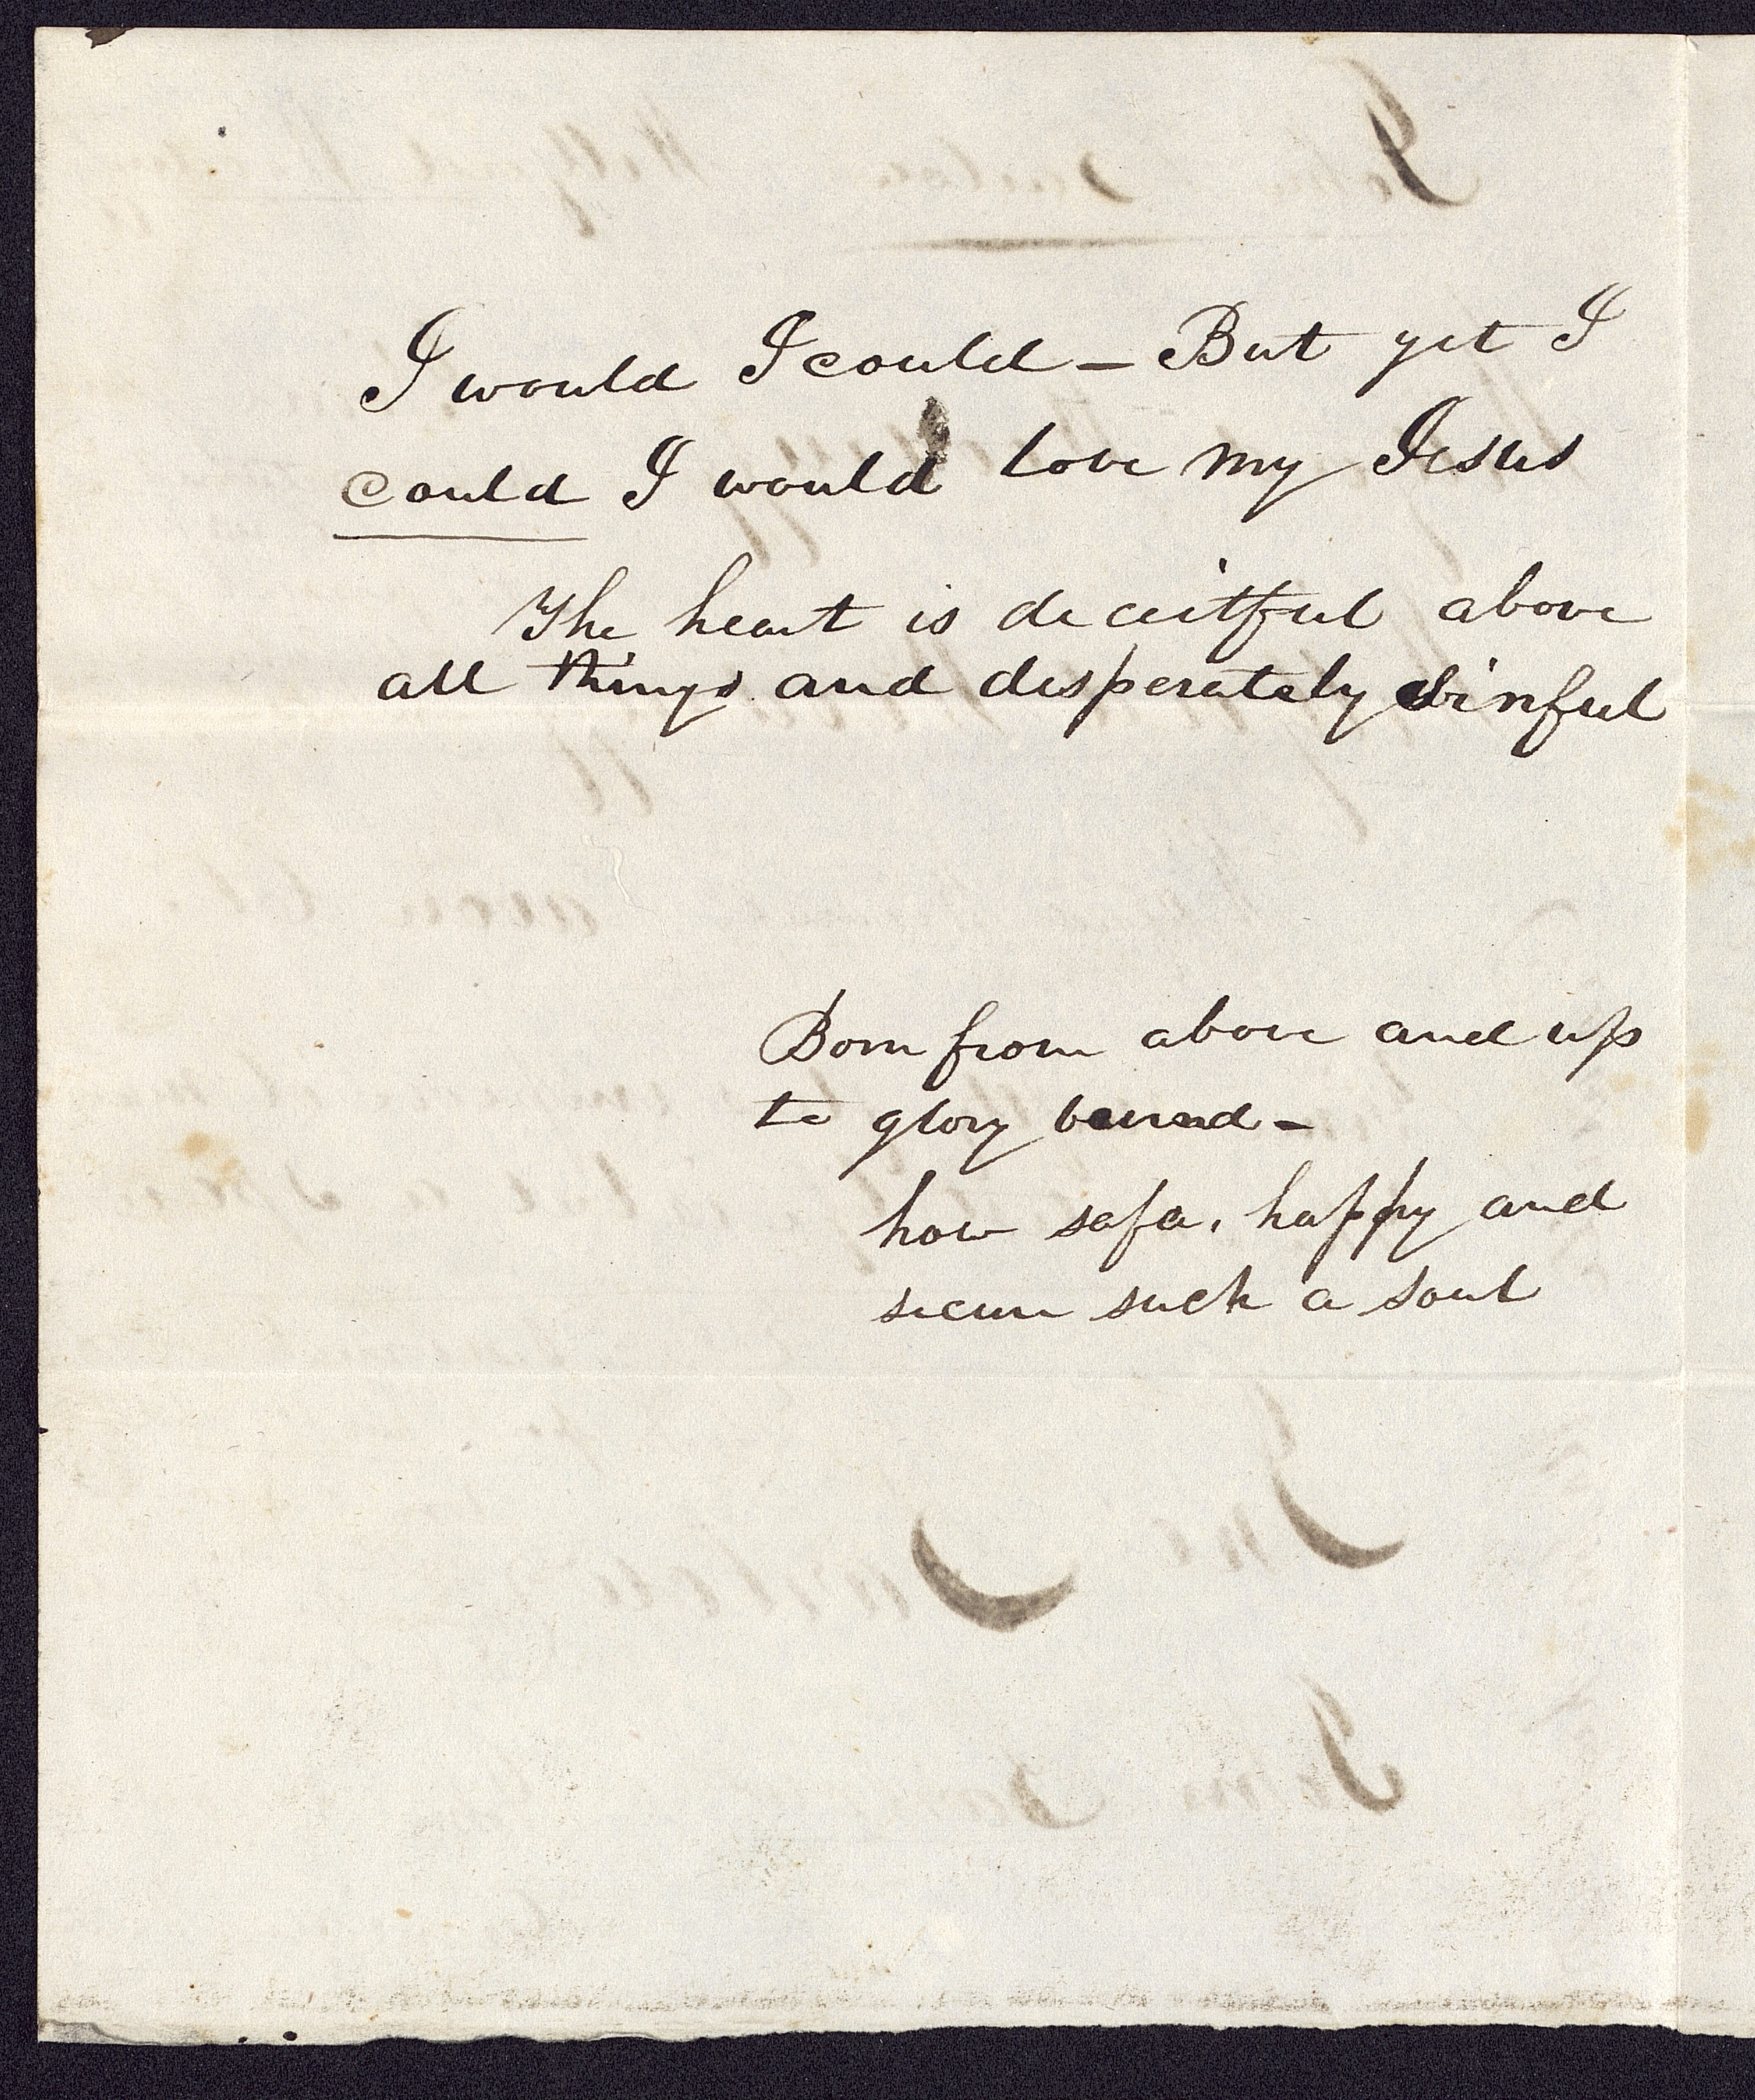 I would I could - But yet I
could I would love my Jesus
The heart is deceitful above
all things and desperately sinful
Born from above and up
to glory bound -
how safe, happy and
secure such a soul